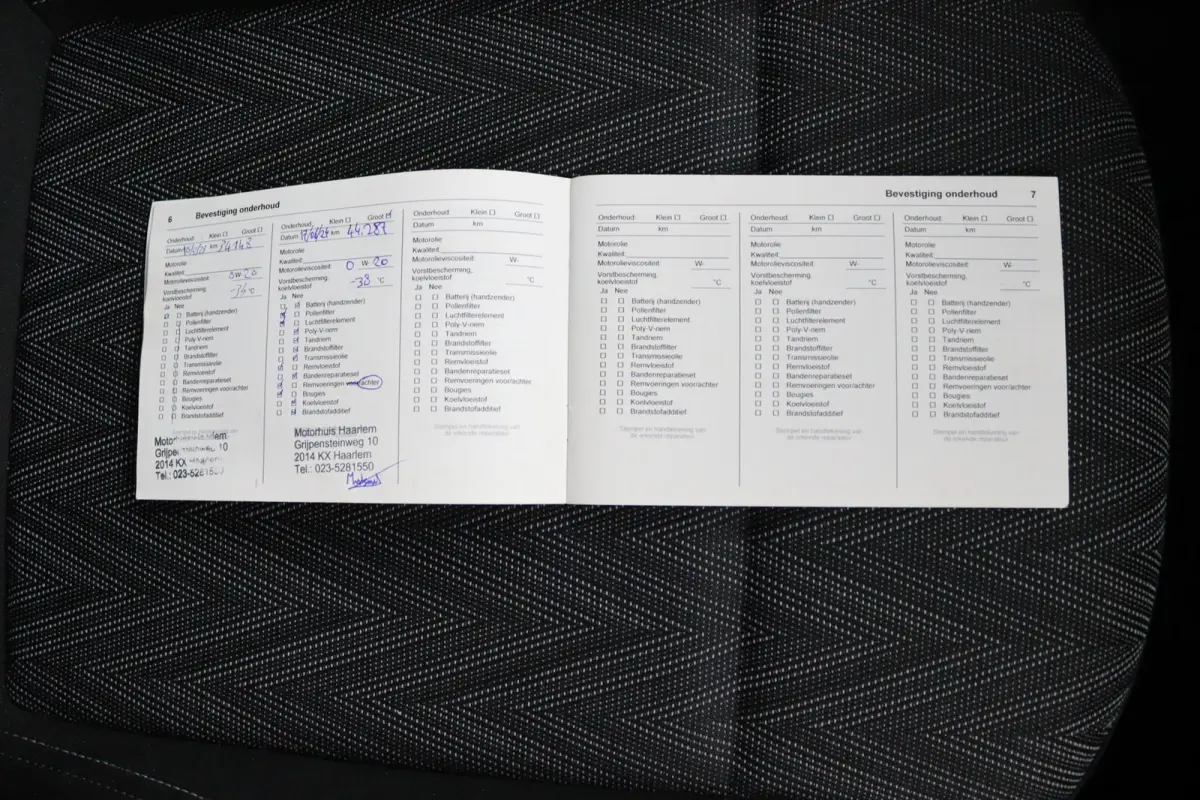 6 Bevestiging onderhoud
Onderhoud: Klein ☐ Groot ☐
Datum km 34143
Motorolie
Kwaliteit:
Motorolieviscositeit: 0 W- 20
Vorstbescherming,
koelvloeistof °C
Ja Nee
Batterij (handzender)
Pollenfilter
Luchtfilterelement
Poly-V-riem
Tandriem
Brandstoffilter
Transmissieolie
Remvloeistof
Bandenreparatieset
Remvoeringen voor/achter
Bougies
Koelvloeistof
Brandstofadditief
Motorhuis Haarlem
Grijpensteinweg 10
2014 KX Haarlem
Tel.: 023-5281550
Onderhoud: Klein ☐ Groot ☑
Datum km 44.287
Motorolie
Kwaliteit:
Motorolieviscositeit: 0 W- 20
Vorstbescherming,
koelvloeistof -38 °C
Ja Nee
Batterij (handzender)
Pollenfilter
Luchtfilterelement
Poly-V-riem
Tandriem
Brandstoffilter
Transmissieolie
Remvloeistof
Bandenreparatieset
Remvoeringen voor/achter
Bougies
Koelvloeistof
Brandstofadditief
Motorhuis Haarlem
Grijpensteinweg 10
2014 KX Haarlem
Tel.: 023-5281550
Onderhoud: Klein ☐ Groot ☐
Datum km
Motorolie
Kwaliteit:
Motorolieviscositeit: W-
Vorstbescherming,
koelvloeistof °C
Ja Nee
Batterij (handzender)
Pollenfilter
Luchtfilterelement
Poly-V-riem
Tandriem
Brandstoffilter
Transmissieolie
Remvloeistof
Bandenreparatieset
Remvoeringen voor/achter
Bougies
Koelvloeistof
Brandstofadditief
Stempel en handtekening van
de erkende reparateur
Bevestiging onderhoud 7
Onderhoud: Klein ☐ Groot ☐
Datum km
Motorolie
Kwaliteit:
Motorolieviscositeit: W-
Vorstbescherming,
koelvloeistof °C
Ja Nee
Batterij (handzender)
Pollenfilter
Luchtfilterelement
Poly-V-riem
Tandriem
Brandstoffilter
Transmissieolie
Remvloeistof
Bandenreparatieset
Remvoeringen voor/achter
Bougies
Koelvloeistof
Brandstofadditief
Stempel en handtekening van
de erkende reparateur
Onderhoud: Klein ☐ Groot ☐
Datum km
Motorolie
Kwaliteit:
Motorolieviscositeit: W-
Vorstbescherming,
koelvloeistof °C
Ja Nee
Batterij (handzender)
Pollenfilter
Luchtfilterelement
Poly-V-riem
Tandriem
Brandstoffilter
Transmissieolie
Remvloeistof
Bandenreparatieset
Remvoeringen voor/achter
Bougies
Koelvloeistof
Brandstofadditief
Stempel en handtekening van
de erkende reparateur
Onderhoud: Klein ☐ Groot ☐
Datum km
Motorolie
Kwaliteit:
Motorolieviscositeit: W-
Vorstbescherming,
koelvloeistof °C
Ja Nee
Batterij (handzender)
Pollenfilter
Luchtfilterelement
Poly-V-riem
Tandriem
Brandstoffilter
Transmissieolie
Remvloeistof
Bandenreparatieset
Remvoeringen voor/achter
Bougies
Koelvloeistof
Brandstofadditief
Stempel en handtekening van
de erkende reparateur